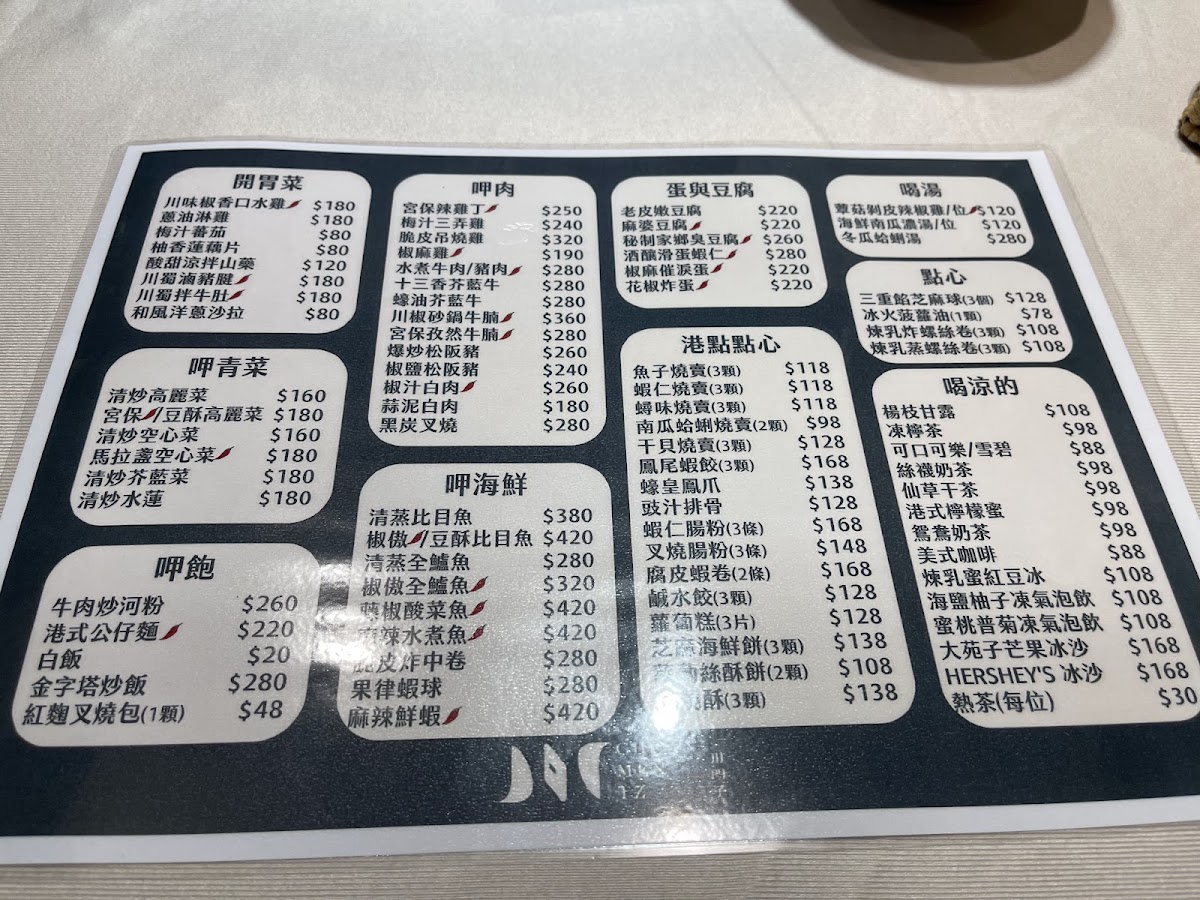 開胃菜
川味椒香口水雞 $180
蔥油淋雞 $180
梅汁蕃茄 $80
柚香蓮藕片 $80
酸甜涼拌山藥 $120
川蜀滷豬腱 $180
川蜀拌牛肚 $180
和風洋蔥沙拉 $80
呷青菜
清炒高麗菜 $160
宮保/豆酥高麗菜 $180
清炒空心菜 $160
馬拉盞空心菜 $180
清炒芥藍菜 $180
清炒水蓮 $180
呷飽
牛肉炒河粉 $260
港式公仔麵 $220
白飯 $20
金字塔炒飯 $280
紅麴叉燒包(1顆) $48
呷肉
宮保辣雞丁 $250
梅汁三弄雞 $240
脆皮吊燒雞 $320
椒麻雞 $190
水煮牛肉/豬肉 $280
十三香芥藍牛 $280
蠔油芥藍牛 $280
川椒砂鍋牛腩 $360
宮保孜然牛腩 $280
爆炒松阪豬 $260
椒鹽松阪豬 $240
椒汁白肉 $260
蒜泥白肉 $180
黑炭叉燒 $280
呷海鮮
清蒸比目魚 $380
椒傲/豆酥比目魚 $420
清蒸全鱸魚 $280
椒傲全鱸魚 $320
椒酸菜魚 $420
辣水煮魚 $420
皮炸中卷 $280
果律蝦球 $280
麻辣鮮蝦 $420
蛋與豆腐
老皮嫩豆腐 $220
麻婆豆腐 $220
秘制家鄉臭豆腐 $260
酒釀滑蛋蝦仁 $280
椒麻催淚蛋 $220
花椒炸蛋 $220
港點點心
魚子燒賣(3顆) $118
蝦仁燒賣(3顆) $118
蟳味燒賣(3顆) $118
南瓜蛤蜊燒賣(2顆) $98
干貝燒賣(3顆) $128
鳳尾蝦餃(3顆) $168
蠔皇鳳爪 $138
豉汁排骨 $128
蝦仁腸粉(3條) $168
叉燒腸粉(3條) $148
腐皮蝦卷(2條) $168
鹹水餃(3顆) $128
蘿蔔糕(3片) $128
芝麻海鮮餅(3顆) $138
絲酥餅(2顆) $108
酥(3顆) $138
喝湯
蕈菇剝皮辣椒雞/位 $120
海鮮南瓜濃湯/位 $120
冬瓜蛤蜊湯 $280
點心
三重餡芝麻球(3個) $128
冰火菠蘿油(1顆) $78
煉乳炸螺絲卷(3顆) $108
煉乳蒸螺絲卷(3顆) $108
喝涼的
楊枝甘露 $108
凍檸茶 $98
可口可樂/雪碧 $88
絲襪奶茶 $98
仙草干茶 $98
港式檸檬蜜 $98
鴛鴦奶茶 $98
美式咖啡 $88
煉乳蜜紅豆冰 $108
海鹽柚子凍氣泡飲 $108
蜜桃普菊凍氣泡飲 $108
大苑子芒果冰沙 $168
HERSHEY'S 冰沙 $168
熱茶(每位) $30